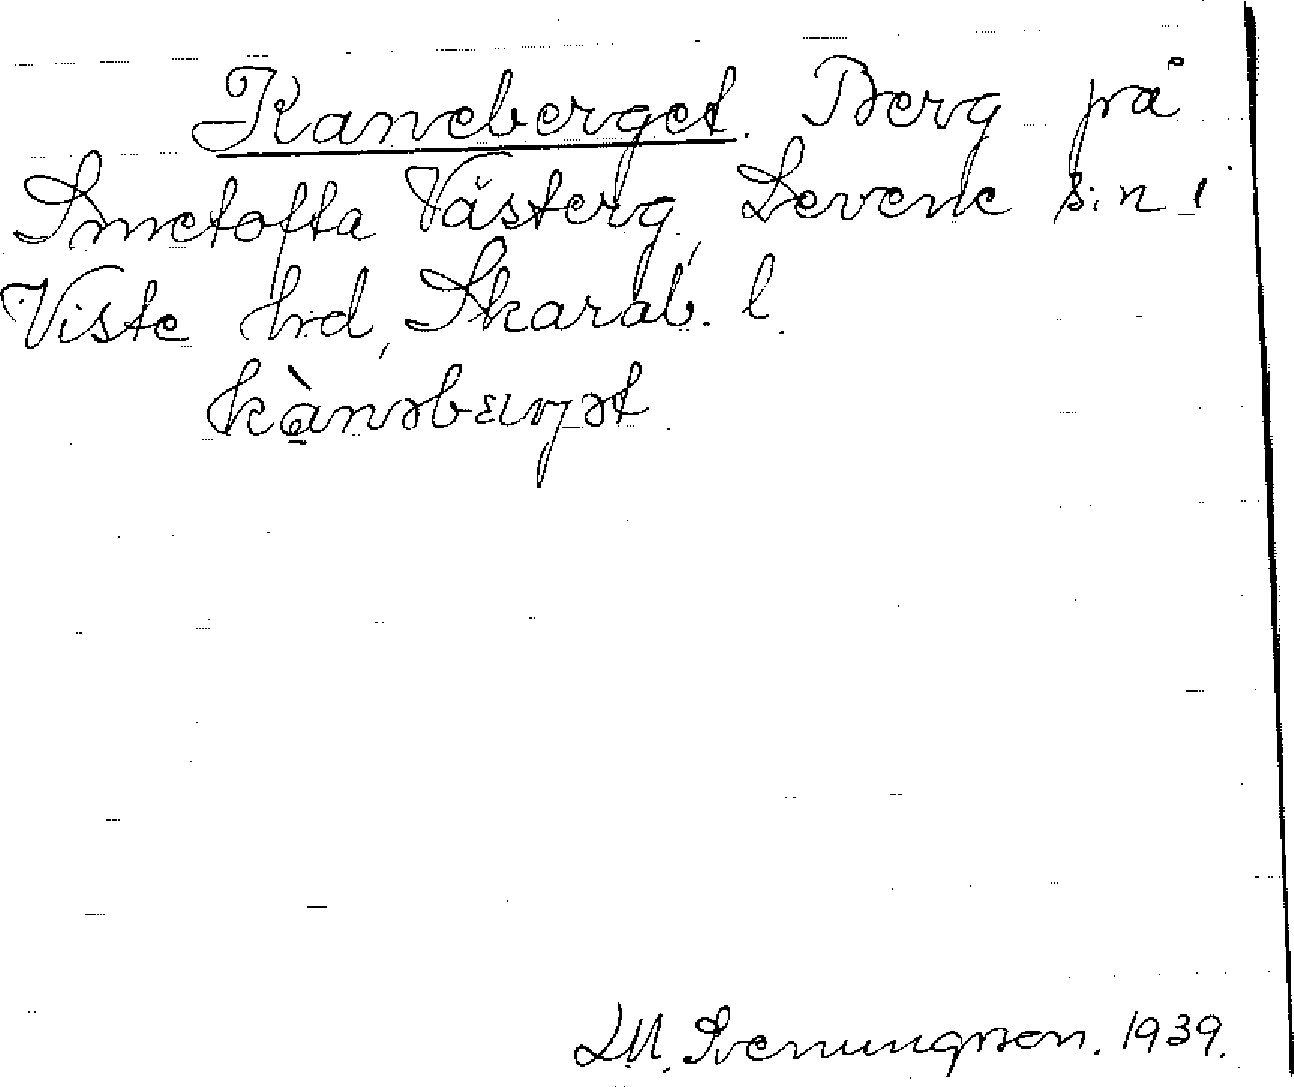 Kaneberget. Berg på
Smetofta Västerg., Levene s:n i
Viste hrd, Skarab. l.
kànəbærjət
L.M. Svenungsson. 1939.